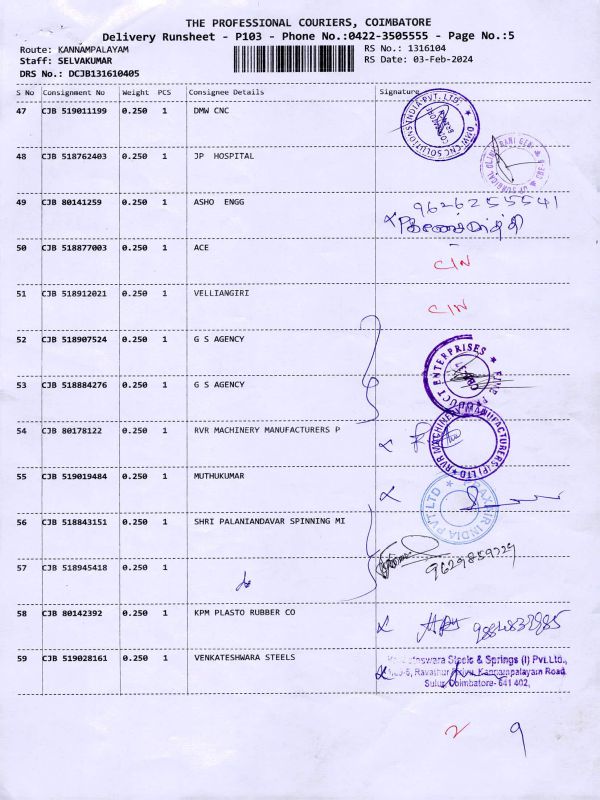 THE PROFESSIONAL COURIERS, COIMBATORE
Delivery Runsheet - P103 - Phone No.:0422-3505555 - Page No.:5
Route: KANNAMPALAYAM RS No.: 1316104
Staff: SELVAKUMAR RS Date: 03-Feb-2024
DRS No.: DCJB131610405
S No Consignment No Weight PCS Consignee Details Signature
47 CJB 519011199 0.250 1 DMW CNC
DMW CNC SOLUTIONS INDIA PVT. LTD.
48 CJB 518762403 0.250 1 JP HOSPITAL
49 CJB 80141259 0.250 1 ASHO ENGG 9626255541
50 CJB 518877003 0.250 1 ACE CIN
51 CJB 518912021 0.250 1 VELLIANGIRI CIN
52 CJB 518907524 0.250 1 G S AGENCY
53 CJB 518884276 0.250 1 G S AGENCY
PRODUCT ENTERPRISES
54 CJB 80178122 0.250 1 RVR MACHINERY MANUFACTURERS P
RVR MACHINERY MANUFACTURERS (P) LTD
55 CJB 519019484 0.250 1 MUTHUKUMAR
INDIA PVT LTD
56 CJB 518843151 0.250 1 SHRI PALANIANDAVAR SPINNING MI
57 CJB 518945418 0.250 1 9629859729
58 CJB 80142392 0.250 1 KPM PLASTO RUBBER CO
59 CJB 519028161 0.250 1 VENKATESHWARA STEELS
Steels & Springs (I) Pvt.Ltd.,
Kannampalayam Road,
Sulur, Coimbatore- 641 402.
2 9